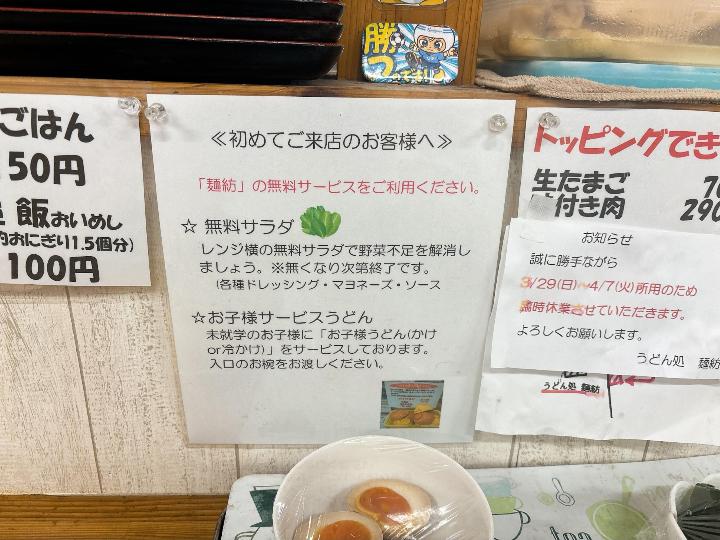 勝つ
ごはん
150円
飯 おいめし
おにぎり1.5個分)
100円
≪初めてご来店のお客様へ≫
「麺紡」の無料サービスをご利用ください。
☆ 無料サラダ
レンジ横の無料サラダで野菜不足を解消し
ましょう。※無くなり次第終了です。
(各種ドレッシング・マヨネーズ・ソース
☆お子様サービスうどん
未就学のお子様に「お子様うどん(かけ
or冷かけ)」をサービスしております。
入口のお椀をお渡しください。
トッピングでき
生たまご 70
付き肉 290
お知らせ
誠に勝手ながら
3/29(日)~4/7(火)所用のため
臨時休業させていただきます。
よろしくお願いします。
うどん処 麺紡
うどん処 麺紡